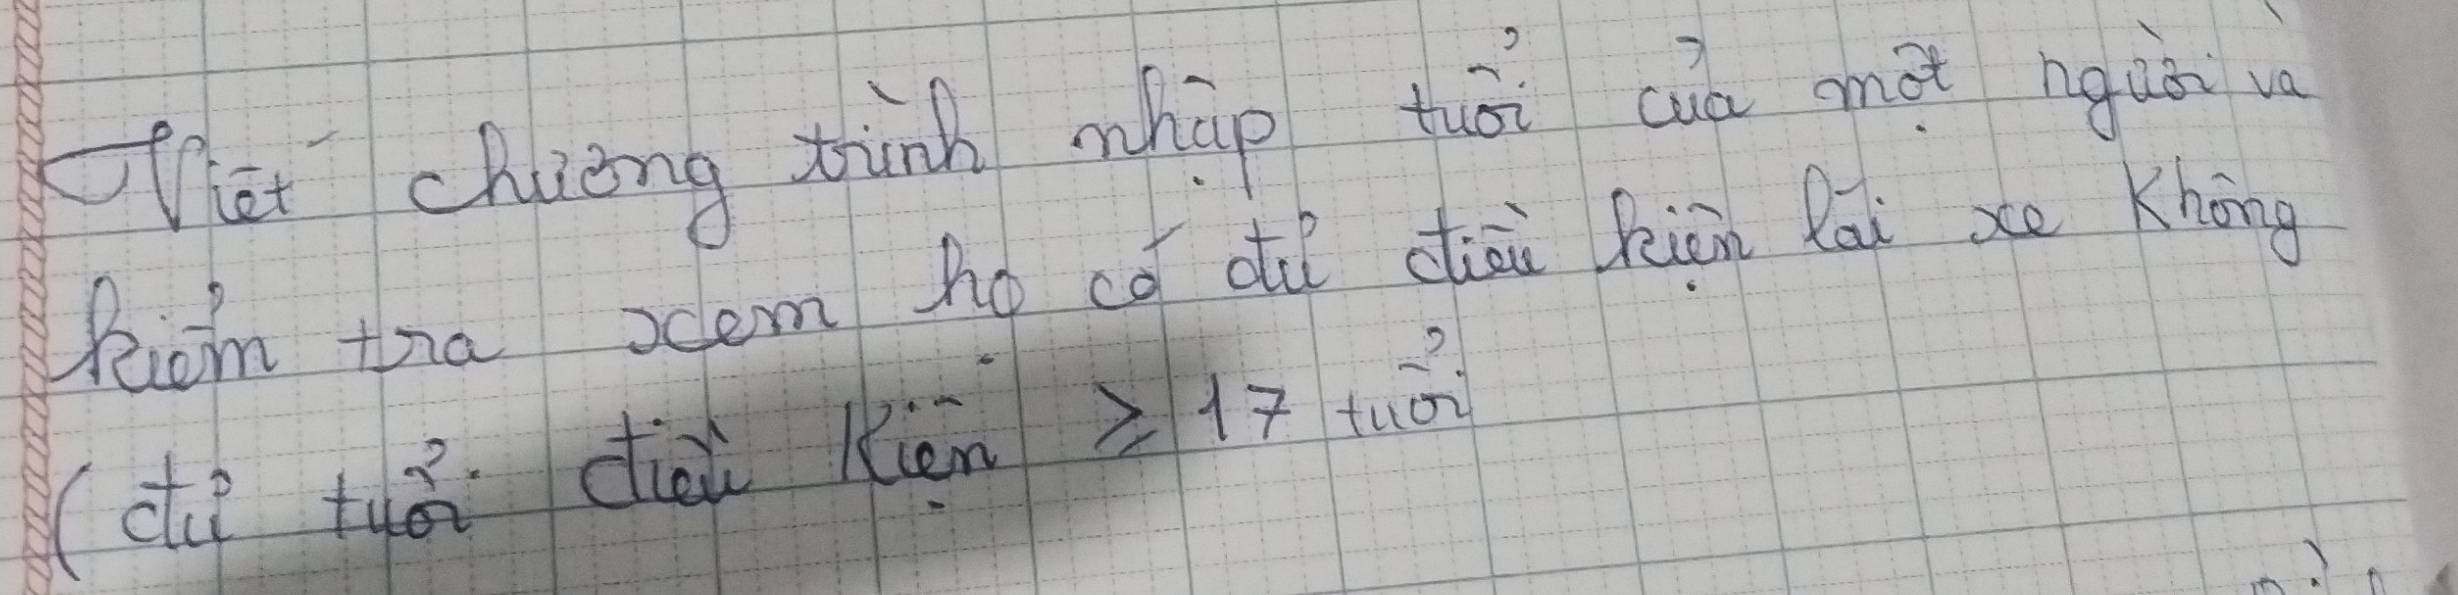 Viết chương trình nhập tuổi của một người và
kiểm tra xem họ có đủ điều kiện lái xe không
(đủ tuổi điều kiện ≥ 17 tuổi